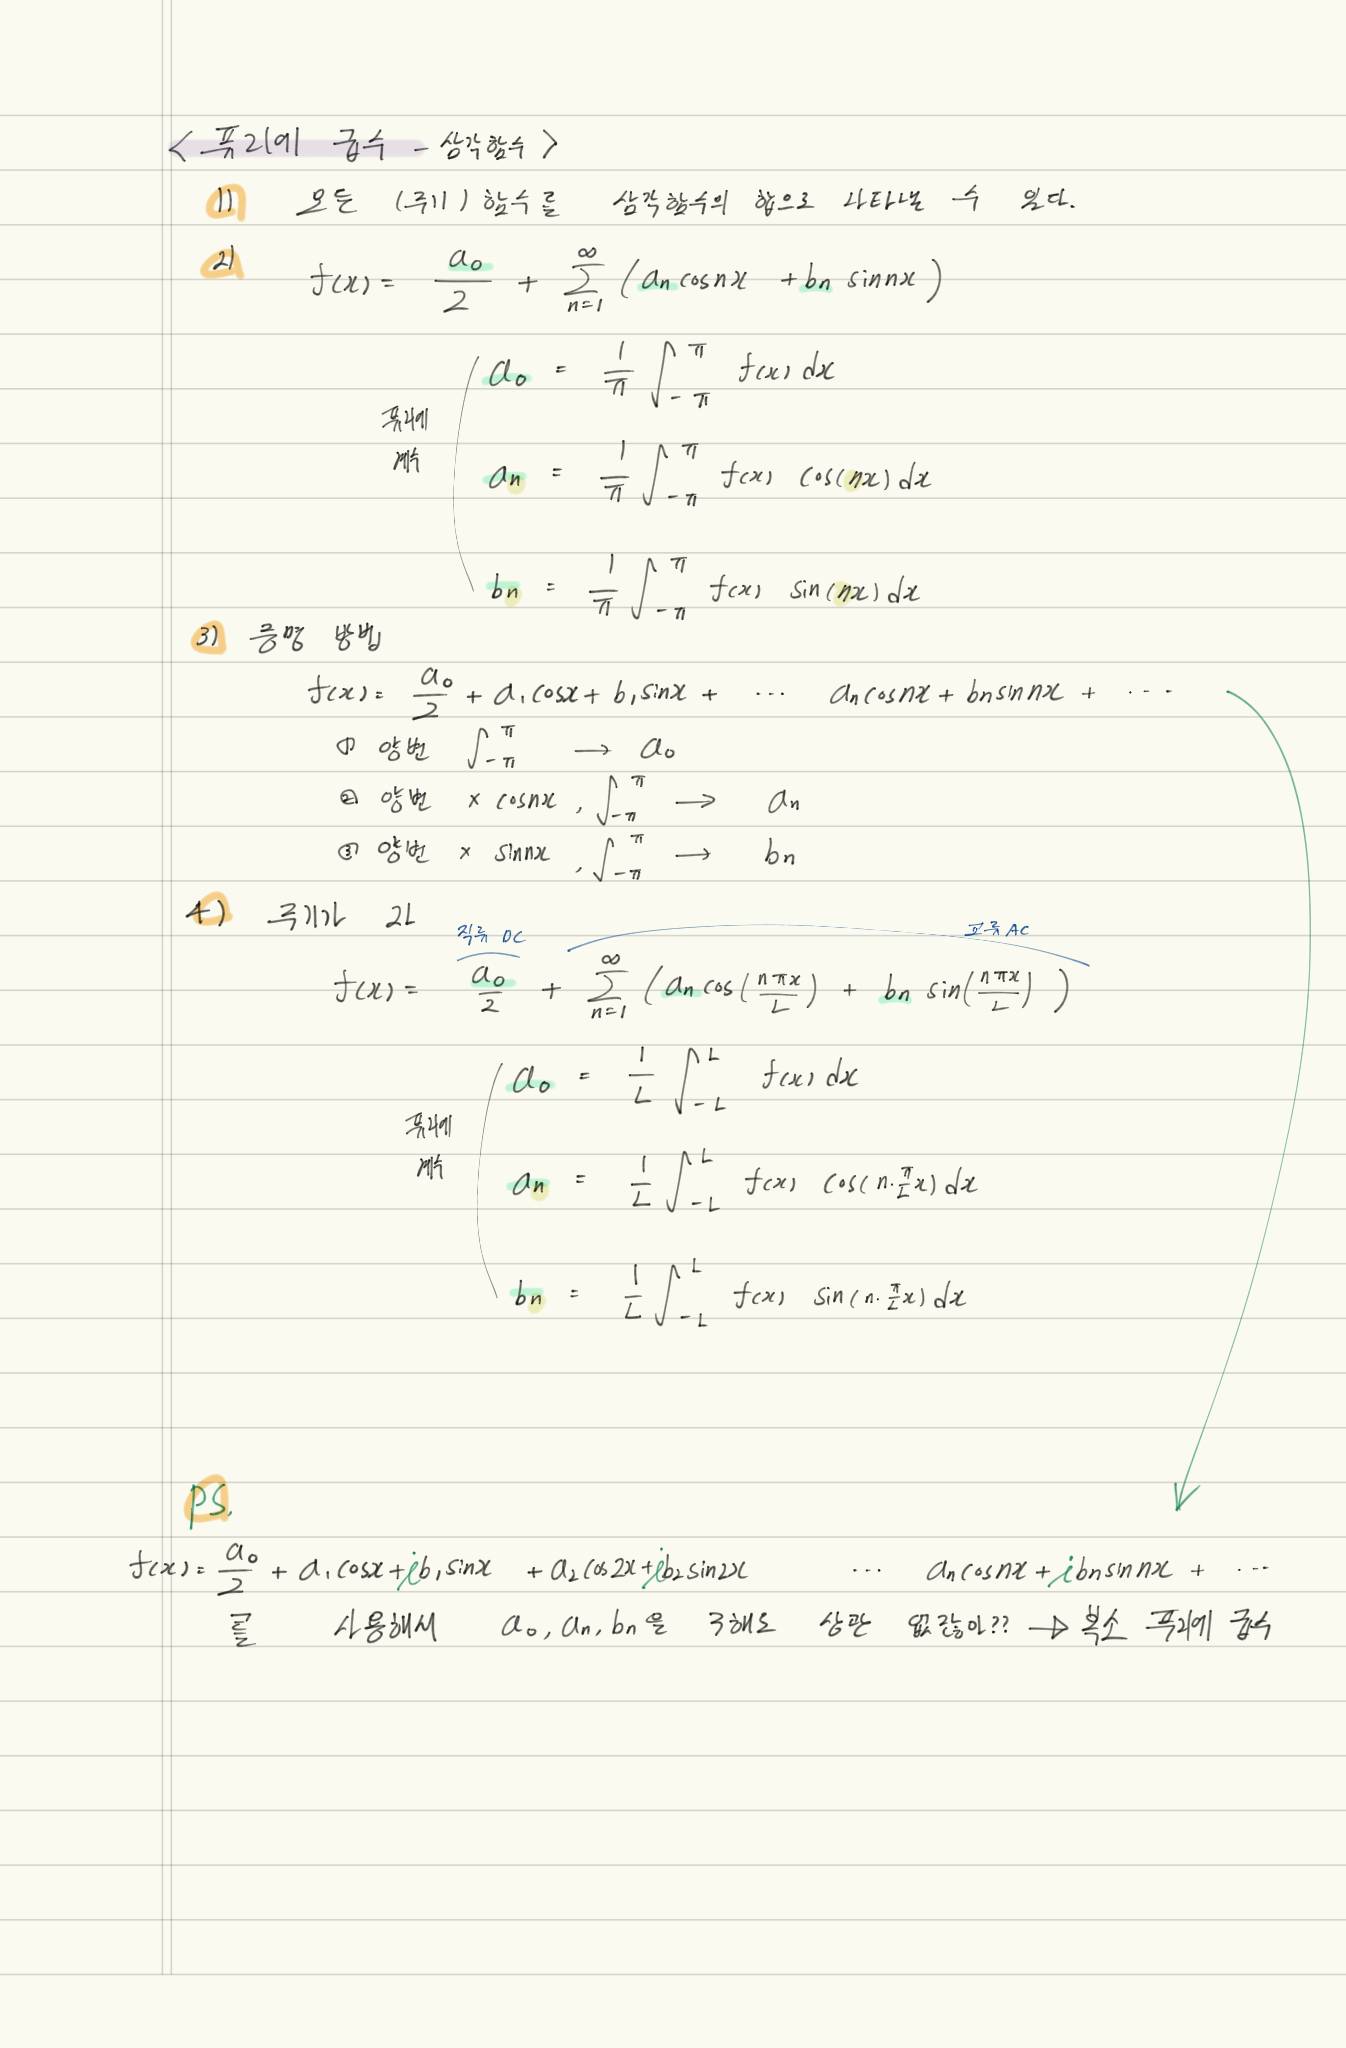 < 푸리에 급수 - 삼각함수 >
1) 모든 (주기) 함수를 삼각함수의 합으로 나타낼 수 있다.
2) f(x) = a₀/2 + ∑_{n=1}^{∞} (aₙ cosnx + bₙ sinnx)
a₀ = 1/π ∫_{-π}^{π} f(x) dx
푸리에
계수
aₙ = 1/π ∫_{-π}^{π} f(x) cos(nx) dx
bₙ = 1/π ∫_{-π}^{π} f(x) sin(nx) dx
3) 증명 방법
f(x) = a₀/2 + a₁cosx + b₁sinx + ⋯ aₙcosnx + bₙsinnx + ⋯
① 양변 ∫_{-π}^{π} → a₀
② 양변 × cosnx, ∫_{-π}^{π} → aₙ
③ 양변 × sinnx, ∫_{-π}^{π} → bₙ
4) 주기가 2L
직류 DC 교류 AC
f(x) = a₀/2 + ∑_{n=1}^{∞} (aₙ cos(nπx/L) + bₙ sin(nπx/L))
a₀ = 1/L ∫_{-L}^{L} f(x) dx
푸리에
계수
aₙ = 1/L ∫_{-L}^{L} f(x) cos(n·π/L x) dx
bₙ = 1/L ∫_{-L}^{L} f(x) sin(n·π/L x) dx
PS.
f(x) = a₀/2 + a₁cosx + ib₁sinx + a₂cos2x + ib₂sin2x ⋯ aₙcosnx + ibₙsinnx + ⋯
를 사용해서 a₀, aₙ, bₙ을 구해도 상관 없잖아?? → 복소 푸리에 급수